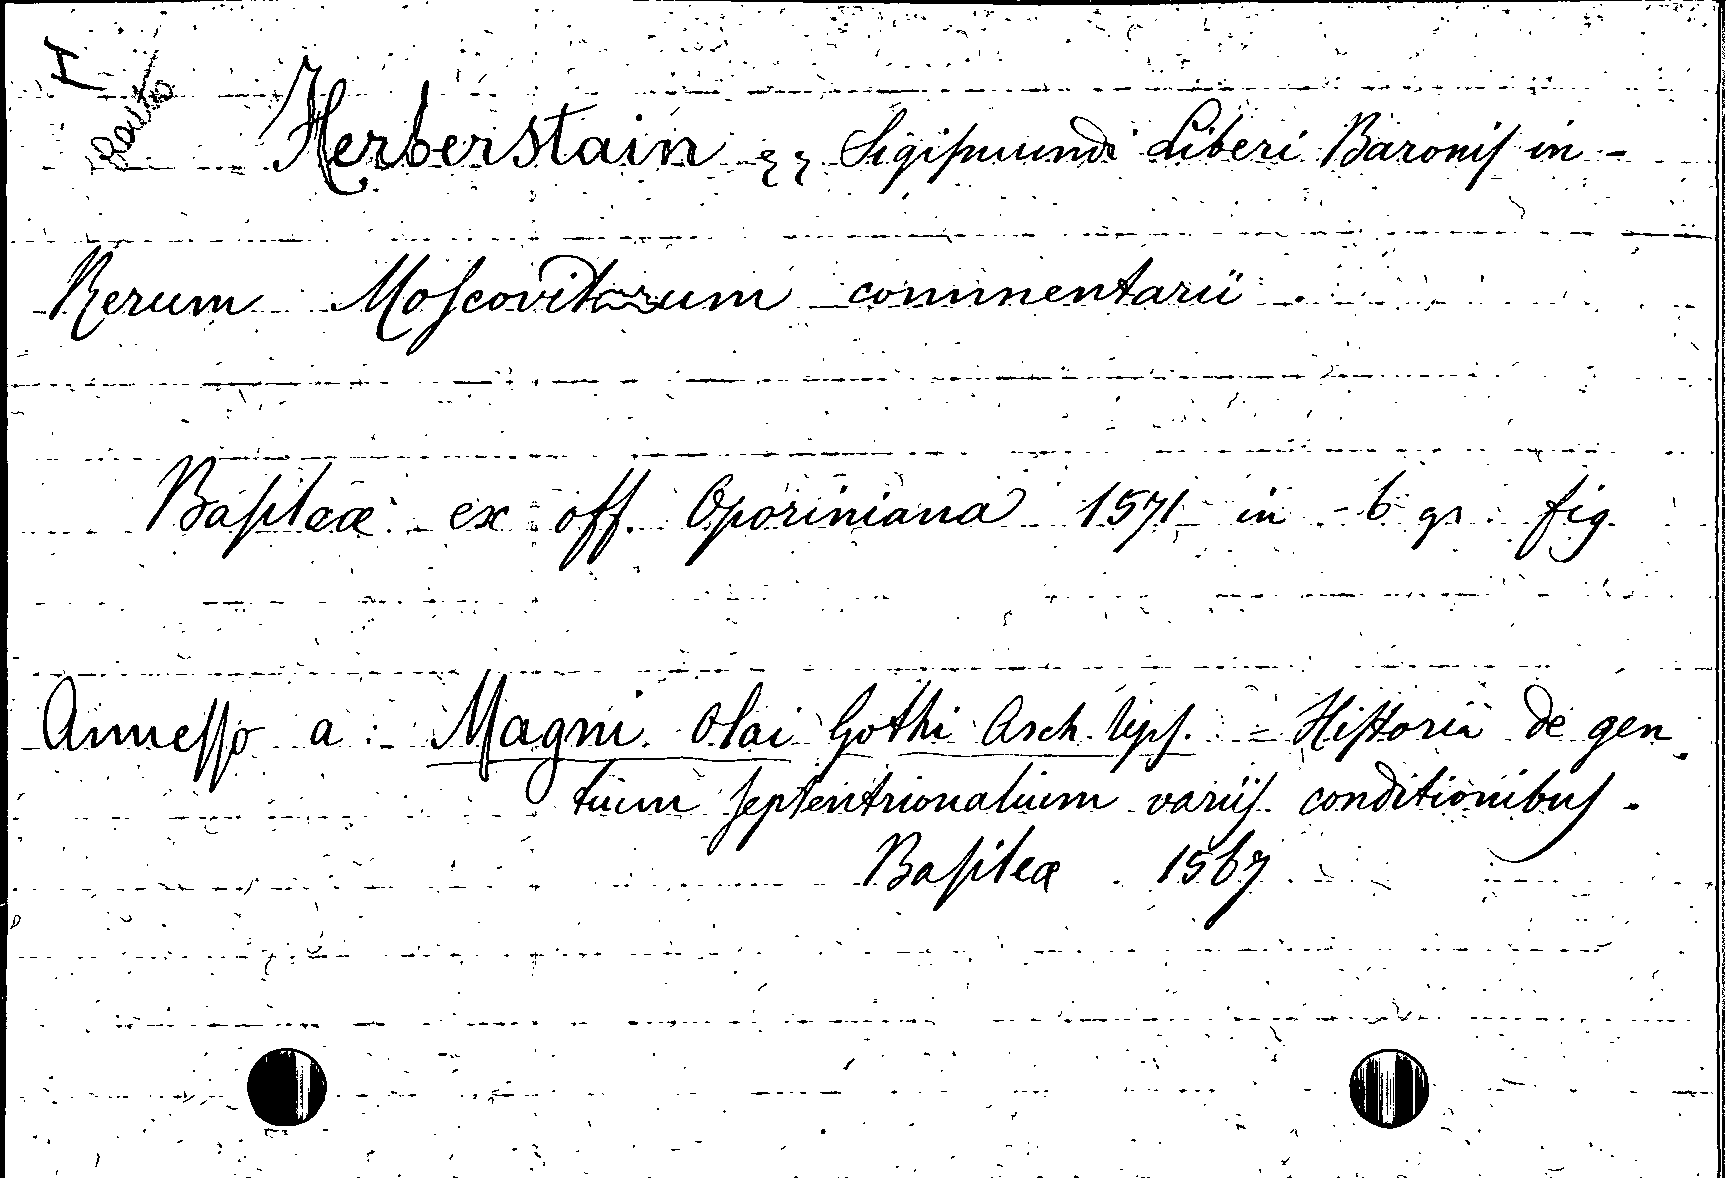 H
Herberstain Sigismundi Liberi Baronis in -
Rerum Moscovitarum commentarii
Basileæ ex off. Oporiniana 1571 in - 6 gr. fig.
Annesso a: Magni Olai Gothi Arch. Ups. = Historia de gen
tium septentrionalium variis conditionibus -
Basileæ 1567